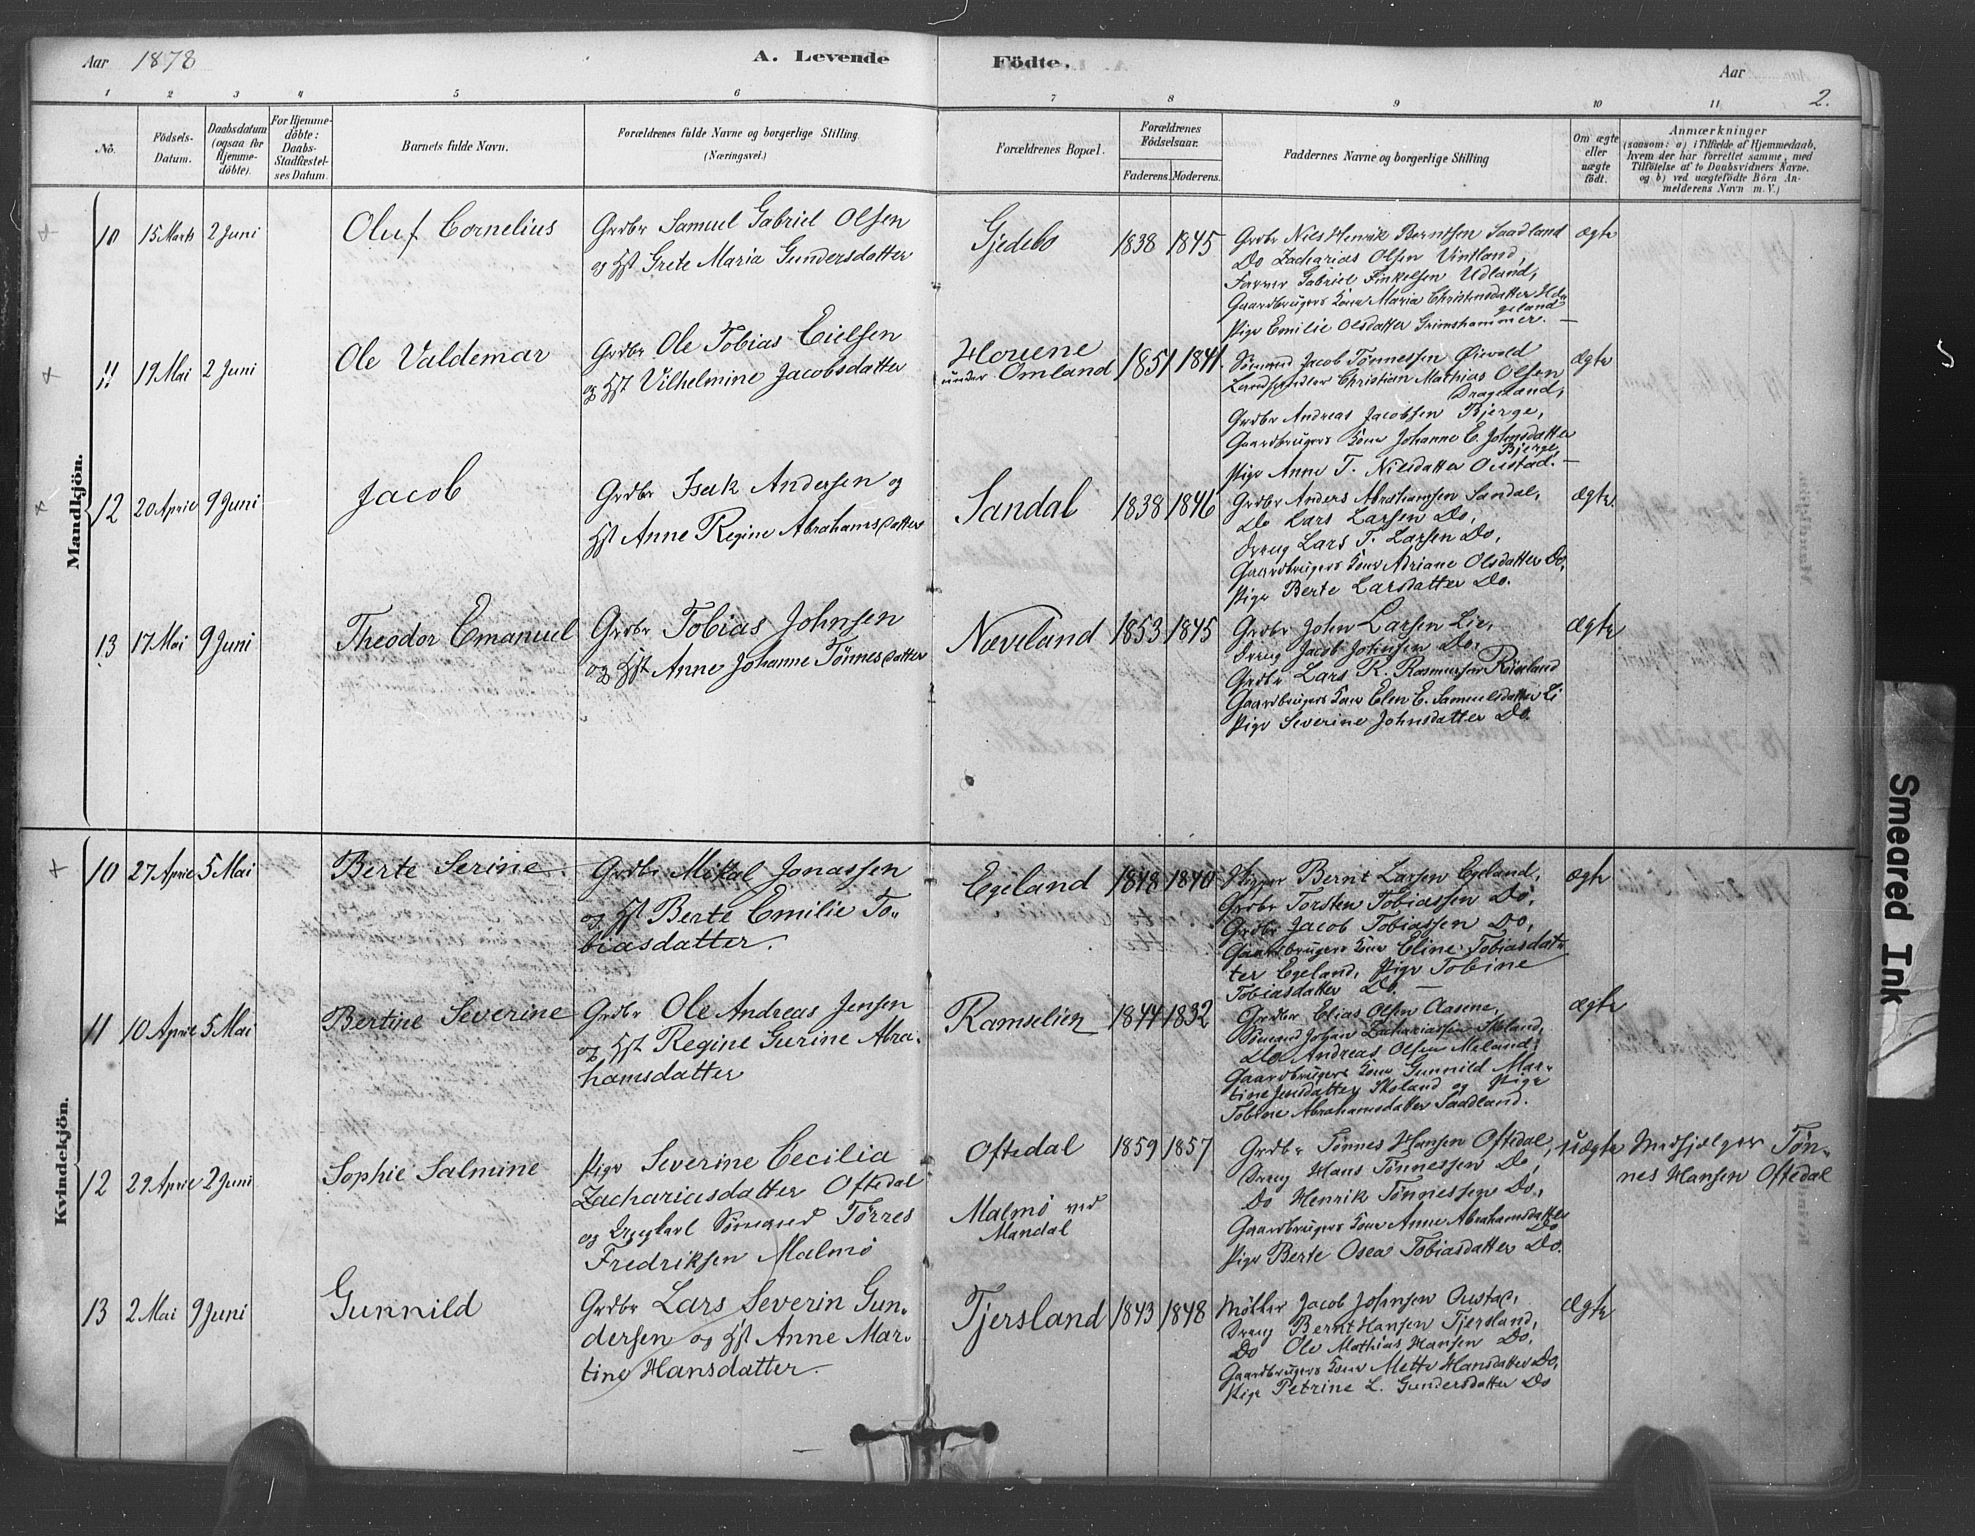 Aar 1878
A. Levende Födte.
Aar
2.
1 2 3 4 5 6 7 8 9 10 11
No.
Födsels-
Datum.
Daabsdatum
(ogsaa for
Hjemme-
döbte).
For Hjemme-
döbte:
Daabs-
Stadfæstel-
ses Datum.
Barnets fulde Navn.
Forældrenes fulde Navne og borgerlige Stilling.
(Næringsvei.)
Forældrenes Bopæl.
Forældrenes
Födselsaar.
Faderens. Moderens.
Faddernes Navne og borgerlige Stilling
Om ægte
eller
uægte
födt.
Anmærkninger
(saasom: a) i Tilfælde af Hjemmedaab,
hvem der har forrettet samme, med
Tilföielse af to Daabsvidners Navne,
og b) ved uægtefödte Börn An-
melderens Navn m. V.)
Mandkjön.
10 15 Marts 2 Juni
Oluf Cornelius
Grdbr Samuel Gabriel Olsen
og Hst Grete Maria Gundersdatter
Gjedebo
1838 1845
Grdbr Niels Henrik Berntsen Saadland
Do Zacharias Olsen Vintland,
Farver Gabriel Finkelsen Udland,
Gaardbrugers Kone Maria Christensdatter
Pige Emilie Olsdatter Grimshammer.
ægte
11 19 Mai 2 Juni
Ole Valdemar
Grdbr Ole Tobias Eielsen
og Hst Vilhelmine Jacobsdatter
under Omland
1851 1841.
Sömand Jacob Tönnessen
Landhandler Christian Mathias Olsen
Drageland,
Grdbr Andreas Jacobsen Bjerge,
Gaardbrugers Kone Johanne E. Johnsdatter
Bjerge,
Pige Anne T. Nilsdatter Ouestad.
ægte
12 20 April 9 Juni
Jacob
Grdbr Isak Andersen og
Hst Anne Regine Abrahamsdatter
Sandal
1838 1846
Grdbr Anders Abrahamsen Sandal,
Do Lars Larsen Do,
Dreng Lars T. Larsen Do,
Gaardbrugers Kone Adriane Olsdatter Do,
Pige Berte Larsdatter Do.
ægte.
13 17 Mai 9 Juni
Theodor Emanuel
Grdbr Tobias Johnsen
og Hst Anne Johanne Tönnesdatter
Næveland
1853 1845
Grdbr John Larsen Lie,
Dreng Jacob Johnsen Do,
Grdbr Lars R. Rasmussen
Gaardbrugers Kone Elen E. Samuelsdatter Li
Pige Severine Johnsdatter Do.
ægte
Kvindekjön.
10 27 April 5 Mai
Berte Serine.
Grdbr Mikal Jonassen
og Hst Berte Emilie To-
biasdatter.
Egeland
1848 1840
Bernt Larsen Egeland,
Grdbr Torsten Tobiassen Do,
Grdbr Jacob Tobiassen Do,
Gaardbrugers Kone Eline Tobiasdat-
ter Egeland, Pige Tobine
Tobiasdatter Do.
ægte
11 10 April 5 Mai
Bertine Severine
Grdbr Ole Andreas Jensen
og Hst Regine Gurine Abra-
hamsdatter
Ramselien
1844 1832
Grdbr Elias Olsen Aasene,
Sömand Johan Zachariassen Skoland,
Do Andreas Olsen Meland,
Gaardbrugers Kone Gunnild Mar-
tine Jensdatter Skoland og Pige
Tobine Abrahamsdatter Saadland.
ægte
12 29 April 2 Juni
Sophie Salmine
Pige Severine Cecilia
Zachariasdatter Oftedal
og Ungkarl Sömand Törres
Fredriksen Malmö
Oftedal
Malmö ved
Mandal
1859 1857
Grdbr Tönnes Hansen Oftedal,
Dreng Hans Tönnessen Do,
Do Henrik Tönnessen Do,
Gaardbrugers Kone Anne Abrahamsdatter
Do
Pige Berte Osea Tobiasdatter Do.
uægte
Medhjælger Tön-
nes Hansen Oftedal
13 2 Mai 9 Juni
Gunnild
Grdbr Lars Severin Gun-
dersen og Hst Anne Mar-
tine Hansdatter.
Tjersland
1843 1848
Möller Jacob Johnsen Ouestad,
Dreng Bernt Hansen Tjersland,
Do Ole Mathias Hansen Do,
Gaardbrugers Kone Mette Hansdatter Do,
Pige Petrine L. Gundersdatter Do
ægte
Smeared Ink